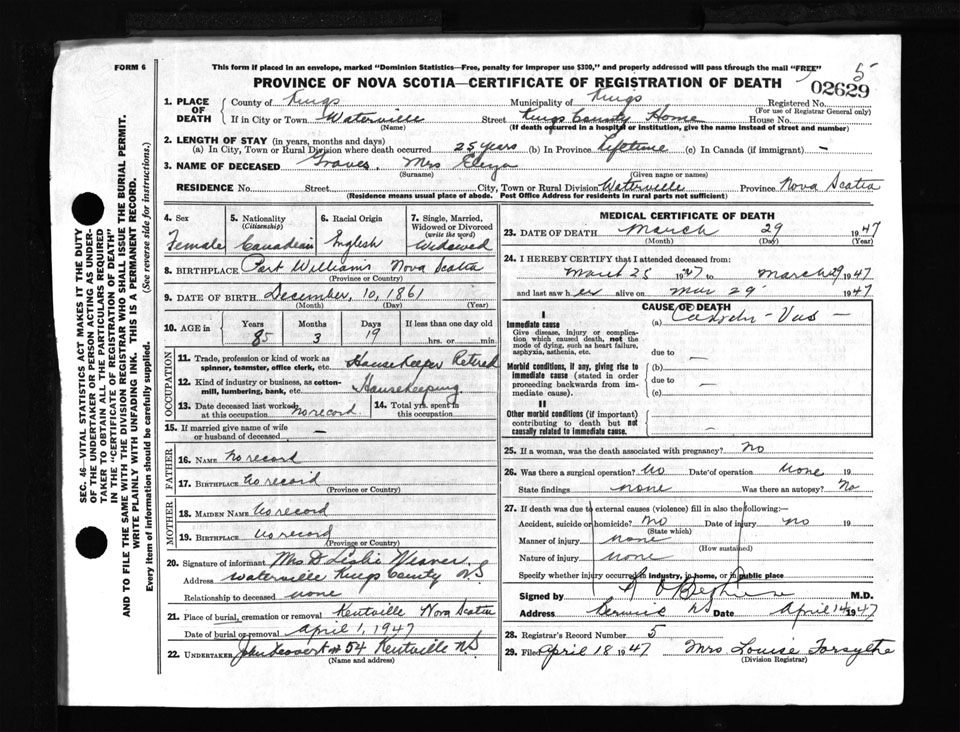 FORM 6
This form if placed in an envelope, marked "Dominion Statistics—Free, penalty for improper use $300," and properly addressed will pass through the mail "FREE"
PROVINCE OF NOVA SCOTIA—CERTIFICATE OF REGISTRATION OF DEATH
5
02629
1. PLACE OF DEATH
County of Kings Municipality of Kings Registered No.
(For use of Registrar General only)
If in City or Town Waterville Street Kings County Home House No.
(Name) (If death occurred in a hospital or institution, give the name instead of street and number)
2. LENGTH OF STAY (in years, months and days)
(a) In City, Town or Rural Division where death occurred 25 years (b) In Province Lifetime (c) In Canada (if immigrant) —
3. NAME OF DECEASED Graves, Mrs
(Surname) (Given name or names)
RESIDENCE No. Street City, Town or Rural Division Waterville Province Nova Scotia
(Residence means usual place of abode. Post Office Address for residents in rural parts not sufficient)
4. Sex Female
5. Nationality (Citizenship) Canadian
6. Racial Origin English
7. Single, Married, Widowed or Divorced (write the word) Widowed
8. BIRTHPLACE Port Williams Nova Scotia
(Province or Country)
9. DATE OF BIRTH December, 10, 1861
(Month) (Day) (Year)
10. AGE in Years 85 Months 3 Days 19 If less than one day old
hrs. or min.
OCCUPATION
11. Trade, profession or kind of work as spinner, teamster, office clerk, etc. Housekeeper Retired
12. Kind of industry or business, as cotton-mill, lumbering, bank, etc. Housekeeping
13. Date deceased last worked at this occupation no record
14. Total yrs. spent in this occupation
15. If married give name of wife or husband of deceased —
FATHER
16. NAME No record
17. BIRTHPLACE No record
(Province or Country)
MOTHER
18. MAIDEN NAME No record
19. BIRTHPLACE No record
(Province or Country)
20. Signature of informant Mrs D Leslie Weaver
Address Waterville Kings County NS
Relationship to deceased none
21. Place of burial, cremation or removal Kentville Nova Scotia
Date of burial or removal April 1, 1947
22. UNDERTAKER # 54 Kentville NS
(Name and address)
MEDICAL CERTIFICATE OF DEATH
23. DATE OF DEATH March 29 1947
(Month) (Day) (Year)
24. I HEREBY CERTIFY that I attended deceased from:
March 25 1947 to March 29 1947
and last saw her alive on Mar 29 1947
CAUSE OF DEATH
I
Immediate cause
Give disease, injury or complication which caused death, not the mode of dying, such as heart failure, asphyxia, asthenia, etc.
(a)
due to —
Morbid conditions, if any, giving rise to immediate cause (stated in order proceeding backwards from immediate cause).
(b)
due to —
(c)
II
Other morbid conditions (if important) contributing to death but not causally related to immediate cause. —
25. If a woman, was the death associated with pregnancy? No
26. Was there a surgical operation? No Date of operation None 19
State findings none Was there an autopsy? No
27. If death was due to external causes (violence) fill in also the following:—
Accident, suicide or homicide? No Date of injury no 19
(State which)
Manner of injury none
(How sustained)
Nature of injury none
Specify whether injury occurred in industry, in home, or in public place
Signed by M.D.
Address Berwick NS Date April 14 1947
28. Registrar's Record Number 5
29. Filed April 18 1947 Mrs. Louise Forsythe
(Division Registrar)
SEC. 46—VITAL STATISTICS ACT MAKES IT THE DUTY
OF THE UNDERTAKER OR PERSON ACTING AS UNDER-
TAKER TO OBTAIN ALL THE PARTICULARS REQUIRED
IN THE "CERTIFICATE OF REGISTRATION OF DEATH"
AND TO FILE THE SAME WITH THE DIVISION REGISTRAR WHO SHALL ISSUE THE BURIAL PERMIT.
WRITE PLAINLY WITH UNFADING INK. THIS IS A PERMANENT RECORD.
Every item of information should be carefully supplied. (See reverse side for instructions.)